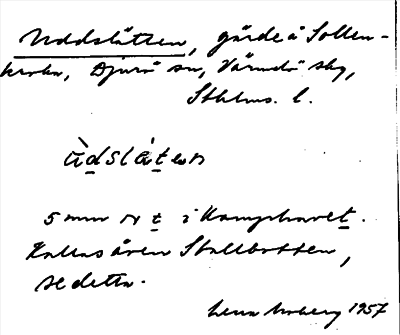 Uddslätten, gärde å Sollen-
kroka, Djurö sn, Värmdö skg,
Sthlms. l.
ùdslát𝑒n
Summ NV t i Kamphavet.
Kallas även Stallbotten,
se detta.
Lena Moberg 1957